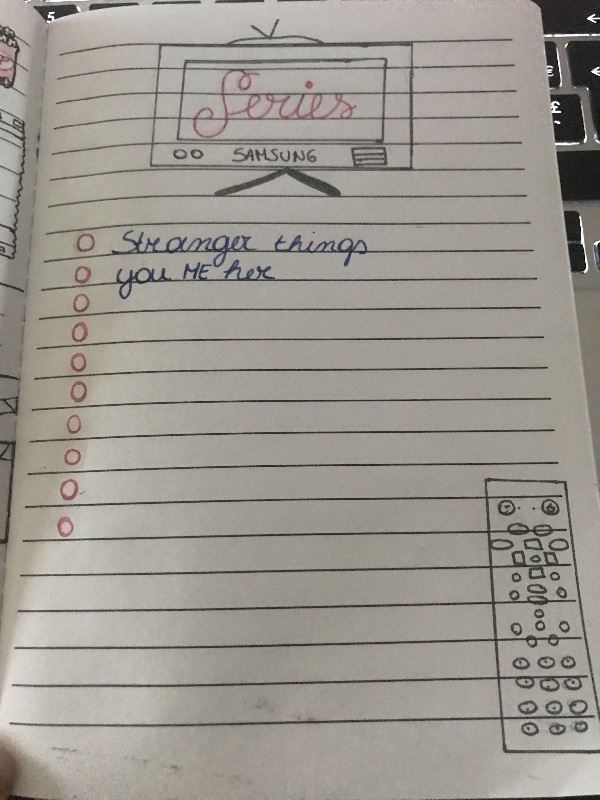 Series
SAMSUNG
Stranger things
you ME her
5
£